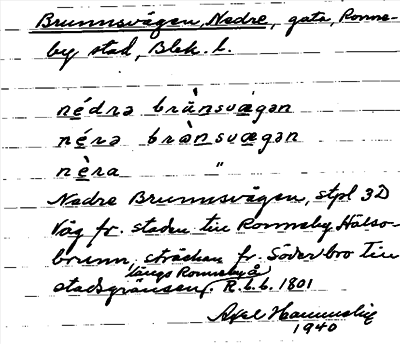 Brunnsvägen, Nedre, gata, Ronne-
by stad, Blek. l.
nédrə brùnsvægən
nérə brùnsvægən
nèra "
Nedre Brunnsvägen, stpl 3D
Väg fr. staden till Ronneby Hälso-
brunn, sträckan fr. Söderbro till
längs Ronnebyå
stadsgränsen. R.b.b. 1801
Axel Hammelig
1940